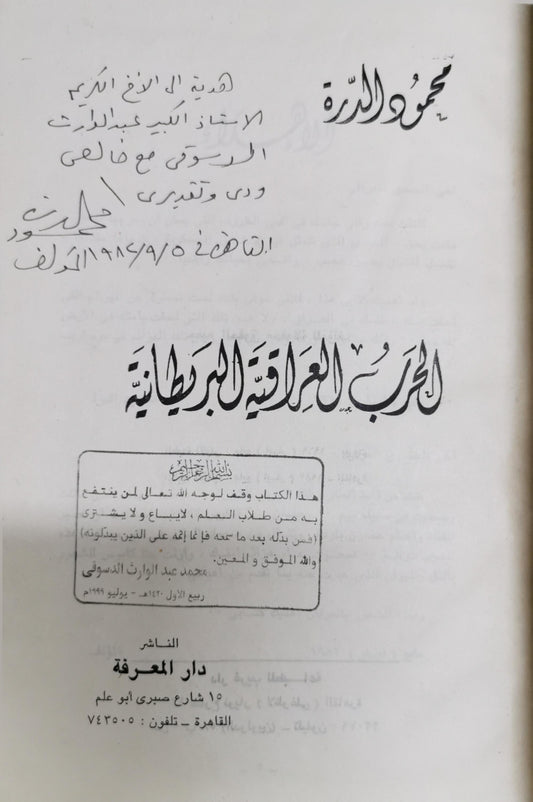 محمود الدرة
هدية الى الأخ الكريم
الاستاذ الكبير عبدالوارث
الدسوقى مع خالص
ودى وتقديرى
محمود الدرة
القاهرة فى ١٩٨٢/٩/٥ المؤلف
الحَربُ العِراقيَّة البريطانيَّة
بسم الله الرحمن الرحيم
هذا الكتاب وقف لوجه الله تعالى لمن ينتفع
به من طلاب العلم ، لايباع ولا يشترى
(فمن بدله بعد ما سمعه فإنما إثمه على الذين يبدلونه)
والله الموفق و المعين.
محمد عبد الوارث الدسوقى
ربيع الاول ١٤٢٠هـ - يوليو ١٩٩٩م
الناشر
دار المعرفة
١٥ شارع صبرى أبو علم
القاهرة ــ تلفون : ٧٤٣٥٠٥